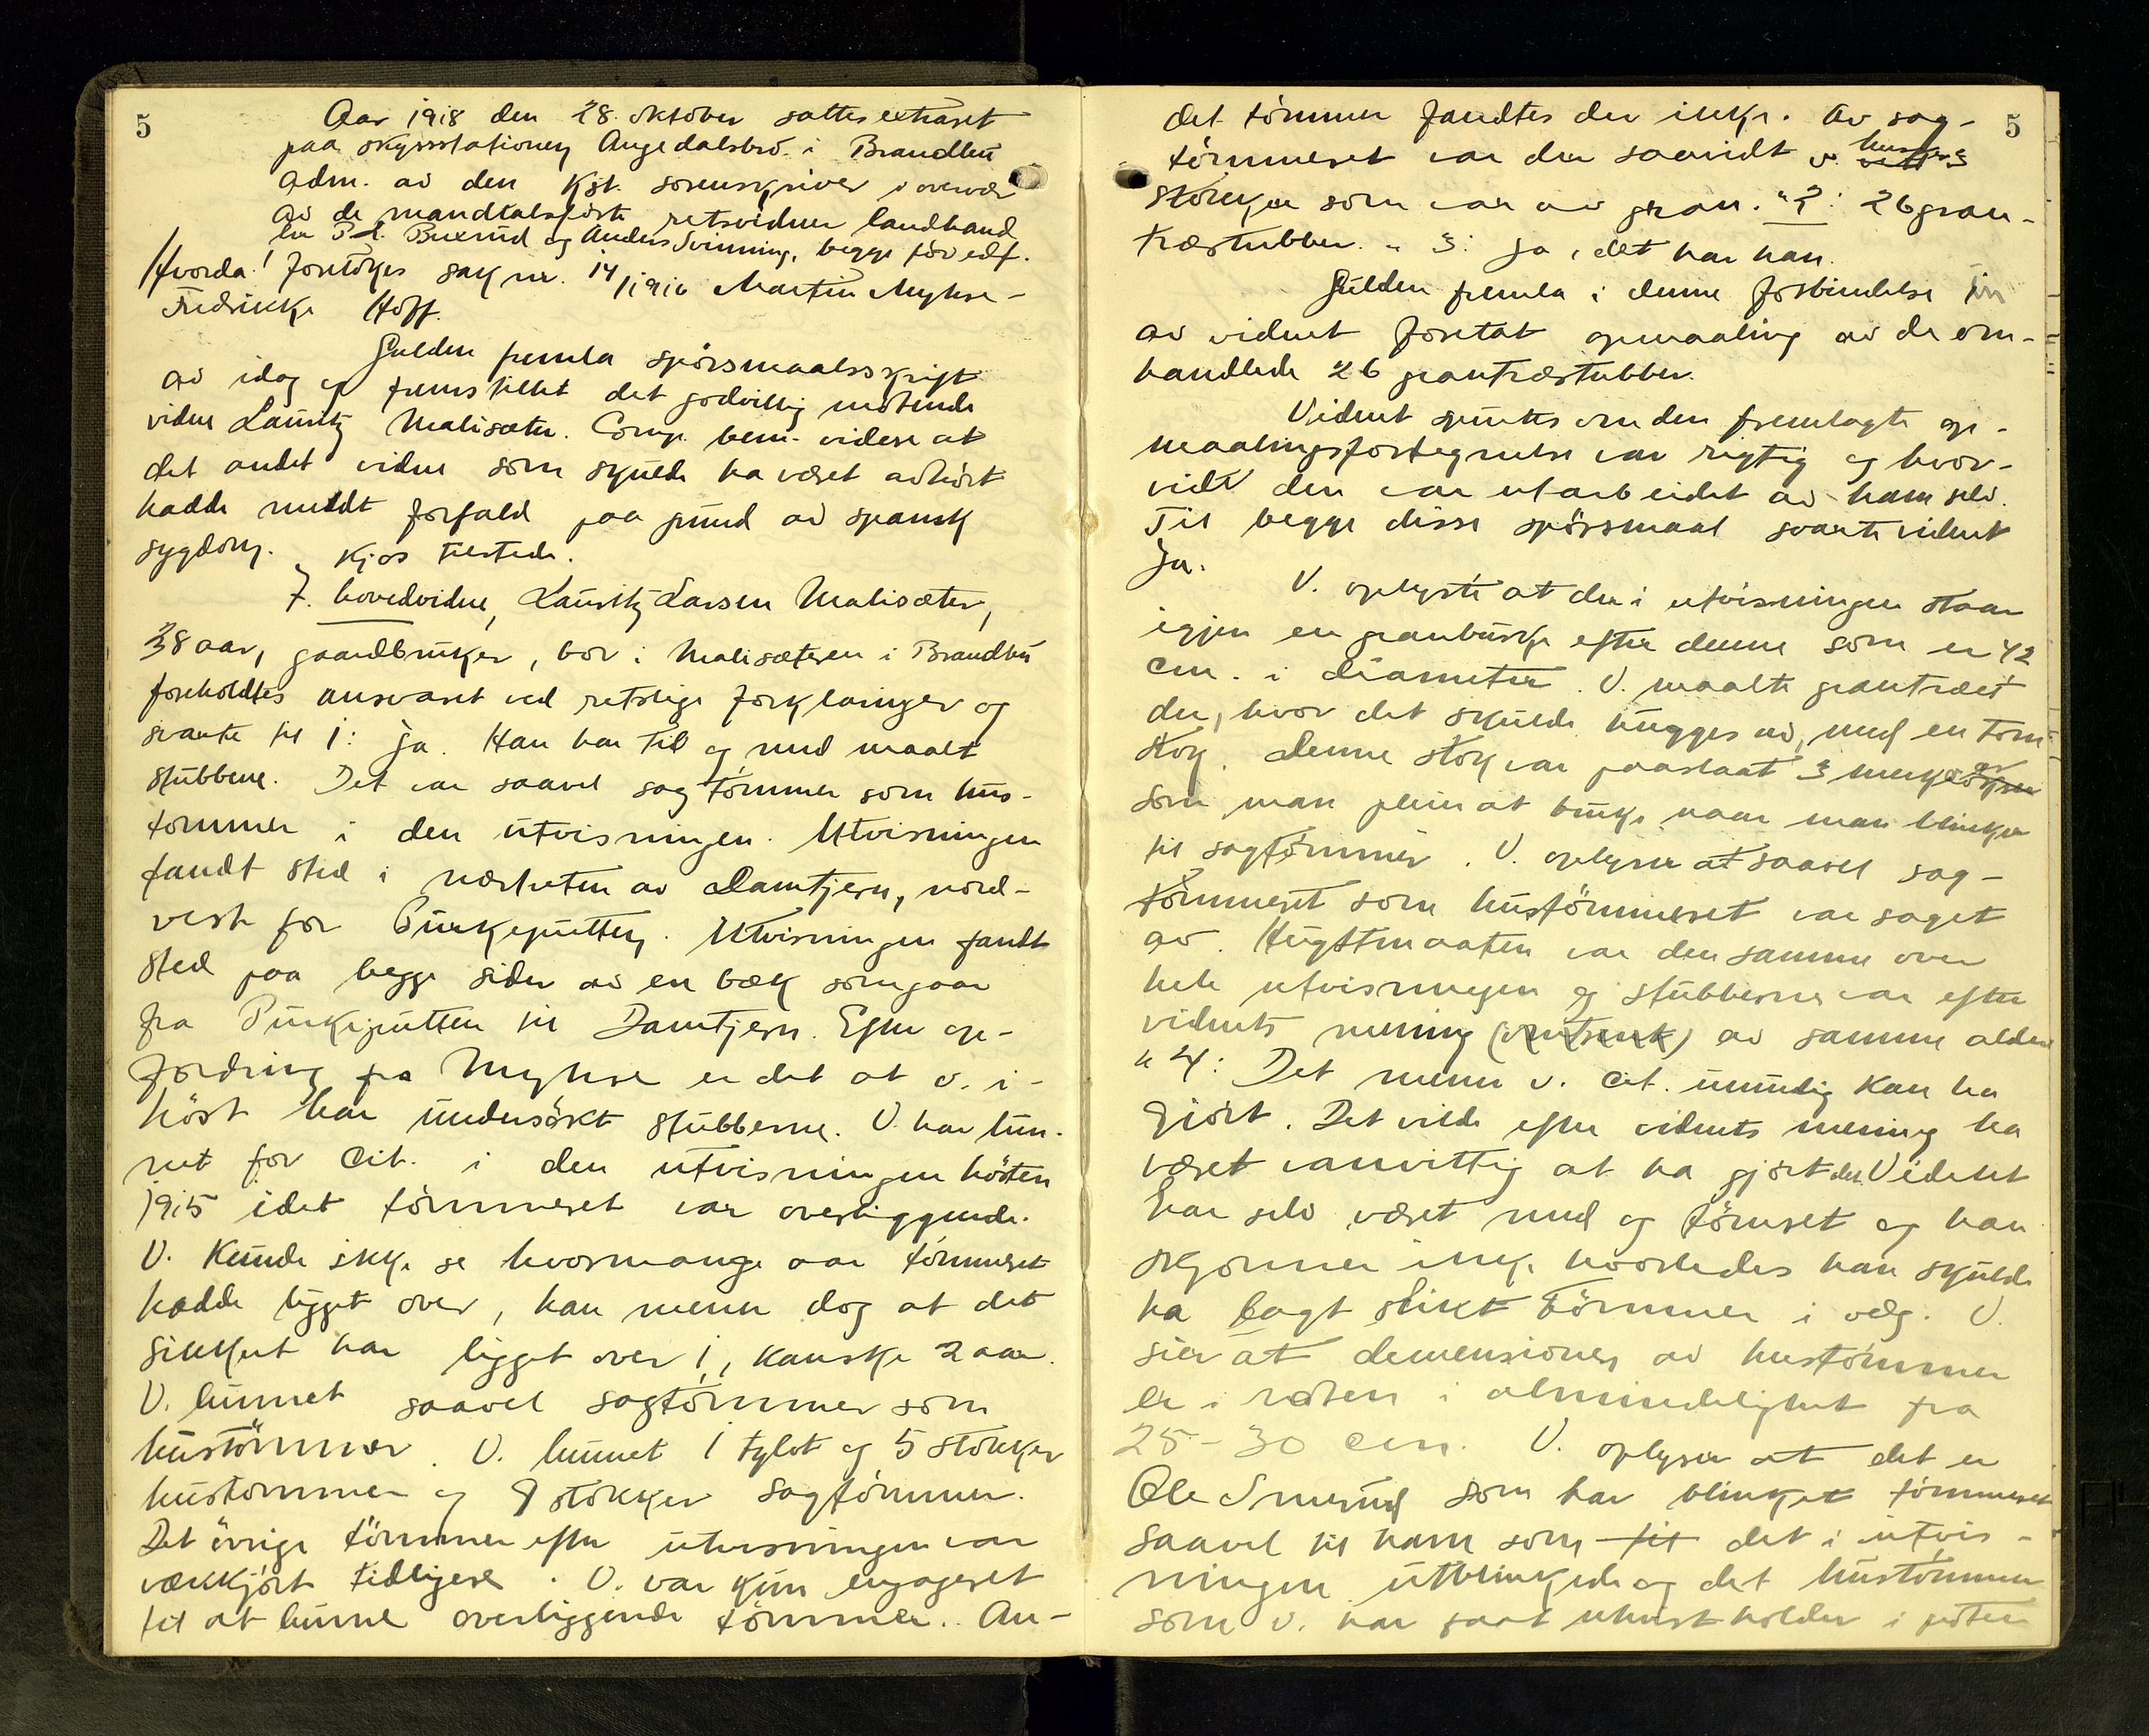 5
Aar 1918 den 28. oktober sattes extraret
paa skysstationen Augedalsbro i Brandbu
adm. av den kst. sorenskriver i overvær
av de mandtalsførte retsvidner landhand
ler P. L. Buxrud og Anders Svinning, begge før edf.
Hvorda! foretokes sak nr. 14/1916 Martin Myhre -
Fredrikke Hoff.
Gulden fremla spörsmaalsskrift
av idag og fremstillet det godvillig mötende
vidne Lauritz Malisæter. Comp. bem. videre at
det andet vidne som skulde ha været avhört
hadde meldt forfald paa grund av spansk
sygdom. Kjos tilstede.
7. hovedvidne, Lauritz Larsen Malisæter,
38 aar, gaardbruker, bor i Malisæteren i Brandbu
foreholdtes ansvaret ved retslige forklaringer og
svarte til 1: Ja. Han har til og med maalt
stubbene. Det var saavel sagtömmer som hus-
tømmer i den utvisningen. Utvisningen
fandt sted i nærheten av Damtjern, nord-
vest for Purkeputten. Utvisningen fandt
sted paa begge sider av en bæk som gaar
fra Purkeputten til Damtjern. Efter op-
fordring fra Myhre er det at v. i-
höst har undersökt stubberne. V. har lun-
net for cit. i den utvisningen hösten
1915 idet tömmeret var overliggende.
V. kunde ikke se hvormange aar tömmeret
hadde ligget over, han mener dog at det
sikkert har ligget over 1, kanske 2 aar.
V. lunnet saavel sagtömmer som
hustömmer. V. lunnet 1 tylvt og 5 stokker
hustømmer og 9 stokker sagtömmer.
Det övrige tömmer efter utvisningen var
vækkjört tidligere. V. var kun engageret
til at lunne overliggende tömmer. An-
5
det tömmer fandtes der ikke. Av sag-
tömmeret var der saavidt v. husker 3
stokker som var av gran. " 2: 26 gran-
træstubber. " 3: Ja, det har han.
Gulden fremla i denne forbindelse en
av vidnet foretat opmaaling av de om-
handlede 26 grantræstubber.
Vidnet spurtes om den fremlagte op-
maalingsfortegnelse var rigtig og hvor-
vidt den var utarbeidet av ham selv.
Til begge disse spörsmaal svarte vidnet
Ja.
V. oplyste at der i utvisningen staar
igjen en granbuske efter denne som er 42
cm. i diameter. V. maalte grantræet
der, hvor det skulde hugges av, med en tom-
stok. Denne stok var paaslaat 3 merker av
som man pleier at bruke naar man blinker
til sagtömmer. V. oplyser at saavel sag-
tömmeret som hustömmeret var saget
av. Hugstmaaten var den samme over
hele utvisningen og stubberne var efter
vidnets mening av samme alder
" 4: Det mener v. cit. umulig kan ha
gjört. Det vilde efter vidnets mening ha
været vanvittig at ha gjort det. Vidnet
har selv været med og tömret og han
skjønner ikke hvorledes han skulde
ha lagt slikt tömmer i væg. V.
sier at demensionen av hustömmer
er i roten i almindelighet fra
25-30 cm. V. oplyser at det er
Ole Smerud som har blinket tömmeret
saavel til ham som det i utvis-
ningen utblinkede og det hustömmer
som v. har faat utvist holder i roten